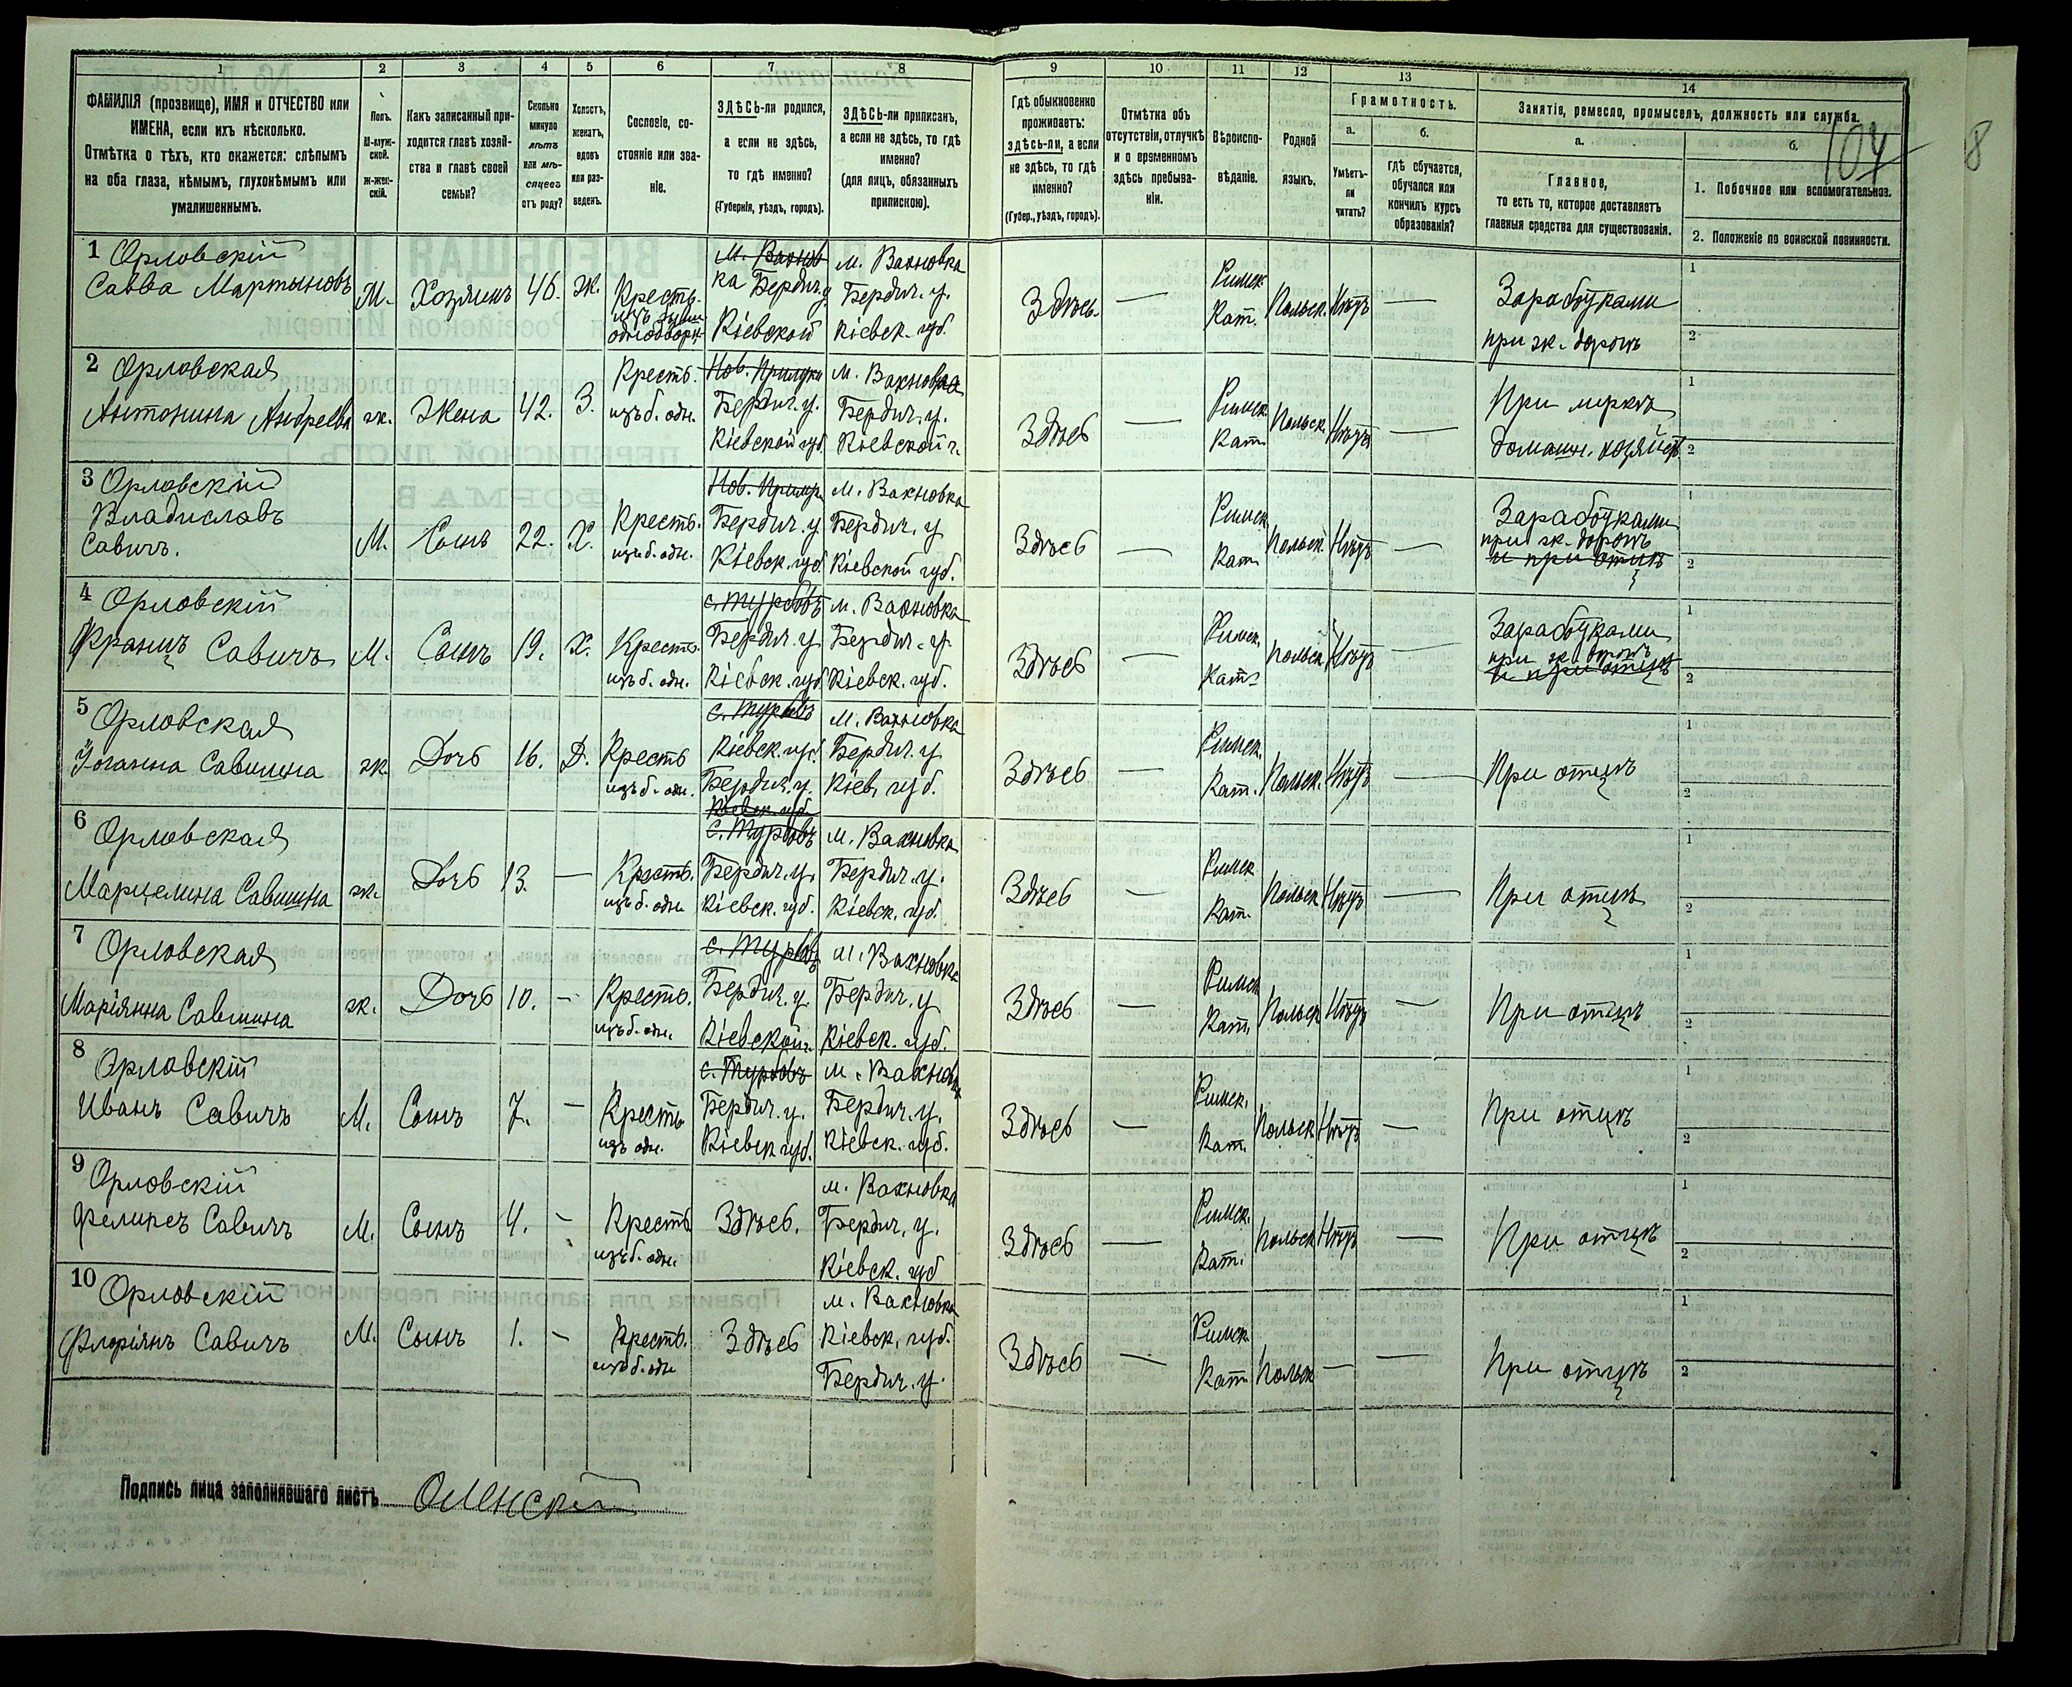 1 2 3 4 5 6 7 8 9 10 11 12 13 14
ФАМИЛІЯ (прозвище), ИМЯ и ОТЧЕСТВО или
ИМЕНА, если ихъ нѣсколько.
Отмѣтка о тѣхъ, кто окажется: слѣпымъ
на оба глаза, нѣмымъ, глухонѣмымъ или
умалишеннымъ.
Полъ.
М-муж-
ской.
ж-жен-
скій.
Какъ записанный при-
ходится главѣ хозяй-
ства и главѣ своей
семьи?
Сколько
минуло
лѣтъ
или мѣ-
сяцевъ
отъ роду?
Холостъ,
женатъ,
вдовъ
или раз-
веденъ.
Сословіе, со-
стояніе или зва-
ніе.
ЗДѢСЬ-ли родился,
а если не здѣсь,
то гдѣ именно?
(Губернія, уѣздъ, городъ).
ЗДѢСЬ-ли приписанъ,
а если не здѣсь, то гдѣ
именно?
(для лицъ, обязанныхъ
припискою).
Гдѣ обыкновенно
проживаетъ:
здѣсь-ли, а если
не здѣсь, то гдѣ
именно?
(Губер., уѣздъ, городъ).
Отмѣтка объ
отсутствіи, отлучкѣ
и о временномъ
здѣсь пребыва-
ніи.
Вѣроиспо-
вѣданіе.
Родной
языкъ.
Грамотность.
а.
Умѣетъ-
ли
читать?
б.
Гдѣ обучается,
обучался или
кончилъ курсъ
образованія?
Занятія, ремесло, промыселъ, должность или служба.
а.
Главное,
то есть то, которое доставляетъ
главныя средства для существованія.
б.
1. Побочное или вспомогательное.
2. Положеніе по воинской повинности.
104
8
1 Орловскій
Савва Мартыновъ
М.
Хозяинъ
46.
ж.
Крестъ.
изъ
однодворц.
м. Вахнов
ка Бердич. у
Кіевской
м. Вахновка
Бердич. у.
Кіевск. губ.
Здѣсь
—
Римск.
Кат.
Польск.
Нѣтъ
—
Заработками
при ж. дорогѣ
1
2
2 Орловская
Антонина Андреева
ж.
Жена
42.
З.
Крестъ.
изъ б. одн.
Нов. Прилуки
Бердич. у.
Кіевской губ.
м. Вахновка
Бердич. у.
Кіевской г.
Здѣсь
—
Римск.
Кат.
Польск.
Нѣтъ
—
При мужѣ
Домашн. хозяйст.
1
2
3 Орловскій
Владиславъ
Савичъ.
М.
Сынъ
22.
Х.
Крестъ.
изъ б. одн.
Нов. Прилук.
Бердич. у
Кіевск. губ.
м. Вахновка
Бердич. у
Кіевской губ.
Здѣсь
—
Римск.
Кат.
Польск.
Нѣтъ
—
Заработками
при ж. дорогѣ
и при отцѣ
1
2
4 Орловскій
Францъ Савичъ
М.
Сынъ
19.
Х.
Крестъ.
изъ б. одн.
с. Турбовъ
Бердич. у
Кіевск. губ.
м. Вахновка
Бердич. у.
Кіевск. губ.
Здѣсь
—
Римск.
Кат.
Польск.
Нѣтъ
—
Заработками
при ж. дорогѣ
и при отцѣ
1
2
5 Орловская
Іоганна Савишна
ж.
Дочь
16.
Д.
Крестъ
изъ б. одн.
с. Турбовъ
Кіевск. губ.
Бердич. у.
м. Вахновка
Бердич. у
Кіев. губ.
Здѣсь
—
Римск.
Кат.
Польск.
Нѣтъ
—
При отцѣ
1
2
6 Орловская
Марцелина Савишна
ж.
Дочь
13.
—
Крестъ.
изъ б. одн
Кіевск. губ.
с. Турбовъ
Бердич. у.
Кіевск. губ.
м. Вахновка
Бердич. у.
Кіевск. губ.
Здѣсь
—
Римск
Кат.
Польск
Нѣтъ
—
При отцѣ
1
2
7 Орловская
Маріянна Савишна
ж.
Дочь
10.
—
Крестъ.
изъ б. одн.
с. Турбовъ
Бердич. у.
Кіевской г.
м. Вахновка
Бердич. у
Кіевск. губ.
Здѣсь
—
Римск
Кат.
Польск
Нѣтъ
—
При отцѣ
1
2
8 Орловскій
Иванъ Савичъ
М.
Сынъ
7.
—
Крестъ
изъ одн.
с. Турбовъ
Бердич. у.
Кіевск губ.
м. Вахновка
Бердич. у.
Кіевск. губ.
Здѣсь
—
Римск.
Кат.
Польск
Нѣтъ
—
При отцѣ
1
2
9 Орловскій
Феликсъ Савичъ
М.
Сынъ
4.
—
Крестъ
изъ б. одн.
Здѣсь.
м. Вахновка
Бердич. у.
Кіевск. губ
Здѣсь
—
Римск.
Кат.
Польск
Нѣтъ
—
При отцѣ
1
2
10 Орловскій
Флоріянъ Савичъ
М.
Сынъ
1.
—
Крестъ.
изъ б. одн
Здѣсь
м. Вахновка
Кіевск. губ.
Бердич. у.
Здѣсь
—
Римск.
Кат
Польск
—
—
При отцѣ
1
2
Подпись лица заполнявшаго листъ